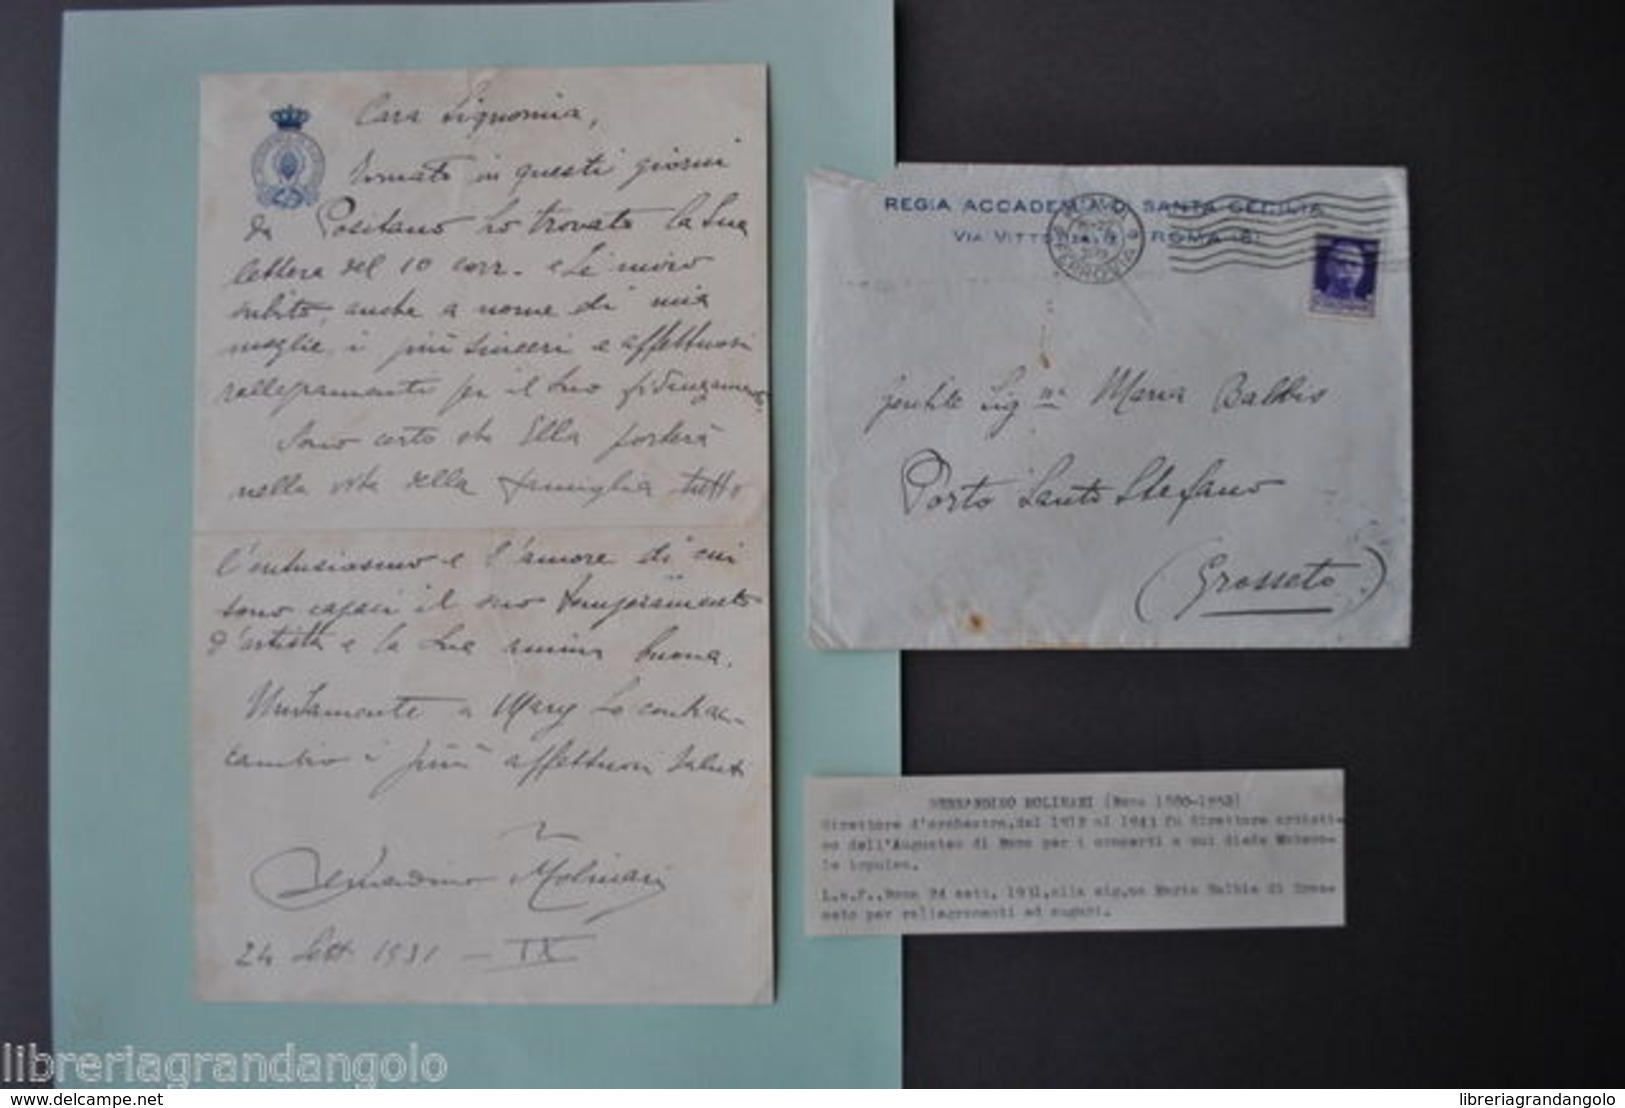 Cara Signorina,
Tornato in questi giorni
da Positano ho trovato la Sua
lettera del 10 corr. e Le invio
subito, anche a nome di mia
moglie, i più sinceri e affettuosi
rallegramenti per il Suo fidanzamento.
Sono certo che Ella porterà
nella vita della famiglia tutto
l'entusiasmo e l'amore di cui
sono capaci il suo temperamento
d'artista e la Sua anima buona.
Unitamente a Mary Le contrac-
cambio i più affettuosi saluti
Bernardino Molinari
24 Sett. 1931 - IX
REGIA ACCADEMIA DI SANTA CECILIA
VIA VITTORIA, ROMA
FERROVIA
Gentile Sig.na Maria Balbis
Porto Santo Stefano
(Grosseto)
BERNARDINO MOLINARI (Roma 1880-1952)
Direttore d'orchestra, dal 1912 al 1943 fu direttore artisti-
co dell'Augusteo di Roma per i concerti a cui diede notevo-
le impulso.
L.a.f., Roma 24 sett. 1931, alla sig.na Maria Balbis di Gros-
seto per rallegramenti ed auguri.
libreriagrandangolo
www.delcampe.net
libreriagrandangolo